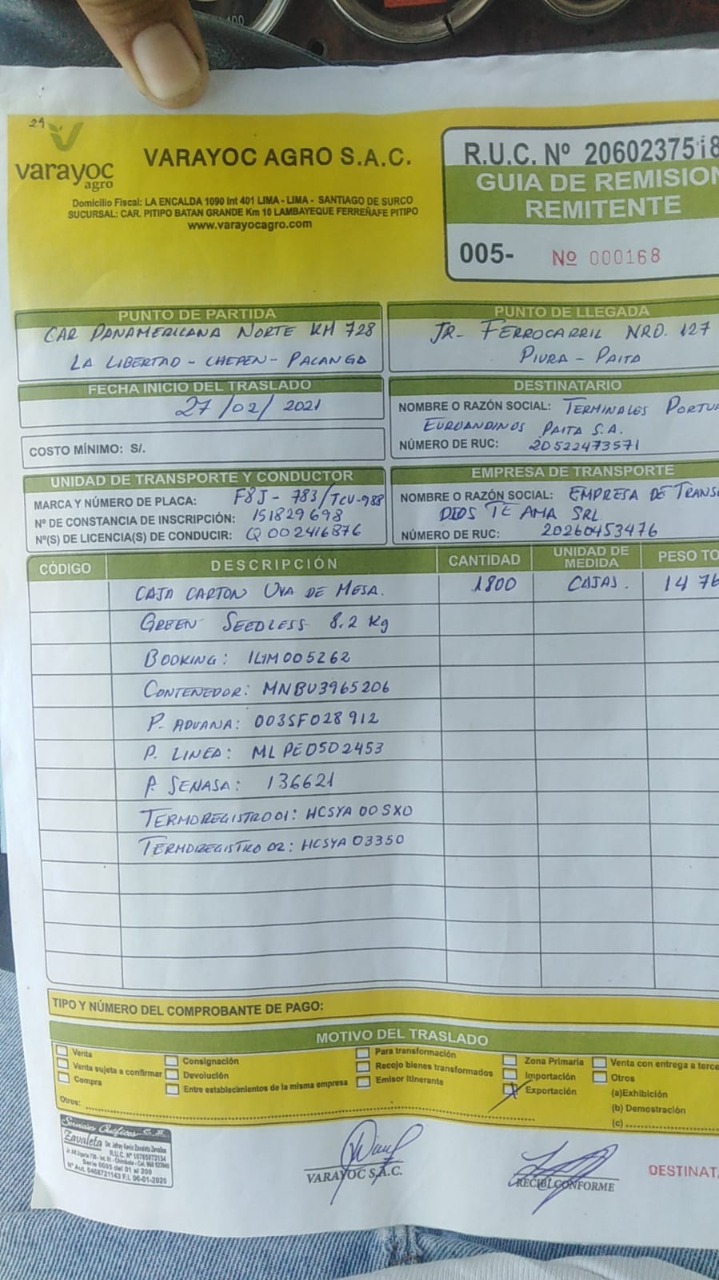 29
varayoc
agro
VARAYOC AGRO S.A.C.
Domicilio Fiscal: LA ENCALDA 1090 Int 401 LIMA - LIMA - SANTIAGO DE SURCO
SUCURSAL: CAR. PITIPO BATAN GRANDE Km 10 LAMBAYEQUE FERREÑAFE PITIPO
www.varayocagro.com
R.U.C. Nº 20602375
GUIA DE REMISION
REMITENTE
005- Nº 000168
PUNTO DE PARTIDA
CAR PANAMERICANA NORTE KM 728
LA LIBERTAD - CHEPEN - PACANGA
PUNTO DE LLEGADA
JR- FERROCARRIL NRO. 127
PIURA - PAITA
FECHA INICIO DEL TRASLADO
27/02/2021
COSTO MÍNIMO: S/.
DESTINATARIO
NOMBRE O RAZÓN SOCIAL: TERMINALES PORTU
EUROANDINOS PAITA S.A.
NÚMERO DE RUC: 20522473571
UNIDAD DE TRANSPORTE Y CONDUCTOR
MARCA Y NÚMERO DE PLACA: F8J-783/TCU-988
Nº DE CONSTANCIA DE INSCRIPCIÓN: 151829698
Nº(S) DE LICENCIA(S) DE CONDUCIR: Q002416876
EMPRESA DE TRANSPORTE
NOMBRE O RAZÓN SOCIAL: EMPRESA DE TRANS
DIOS TE AMA SRL
NÚMERO DE RUC: 20260453476
CÓDIGO DESCRIPCIÓN CANTIDAD UNIDAD DE MEDIDA PESO TO
CAJA CARTON UVA DE MESA. 1800 CAJAS. 14 76
GREEN SEEDLESS 8.2 Kg
BOOKING: 1LIM005262
CONTENEDOR: MNBU3965206
P. ADUANA: 003SF028912
P. LINEA: MLPE0502453
P. SENASA: 136621
TERMOREGISTRO 01: HCSYA 00SX0
TERMOREGISTRO 02: HCSYA 03350
TIPO Y NÚMERO DEL COMPROBANTE DE PAGO:
MOTIVO DEL TRASLADO
Venta
Venta sujeta a confirmar
Compra
Consignación
Devolución
Entre establecimientos de la misma empresa
Para transformación
Recojo bienes transformados
Emisor Itinerante
Zona Primaria
Importación
Exportación
Venta con entrega a terce
Otros
(a)Exhibición
(b) Demostración
(c)
Otros:
Servicios Gráficos E.R.
Zavaleta De Jefrey Kevin Zavaleta Zevallos
R.U.C. Nº 10765872154
Serie 0005 del 01 al 200
Nº Aut. 0468721143 F.I. 06-01-2020
VARAYOC S.A.C.
RECIBI CONFORME
DESTINAT